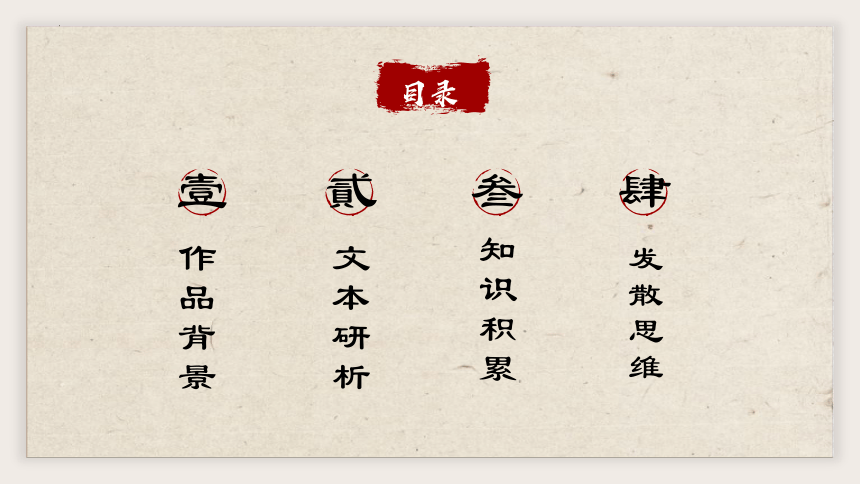 目录
壹
作品背景
貳
文本研析
叁
知识积累
肆
发散思维